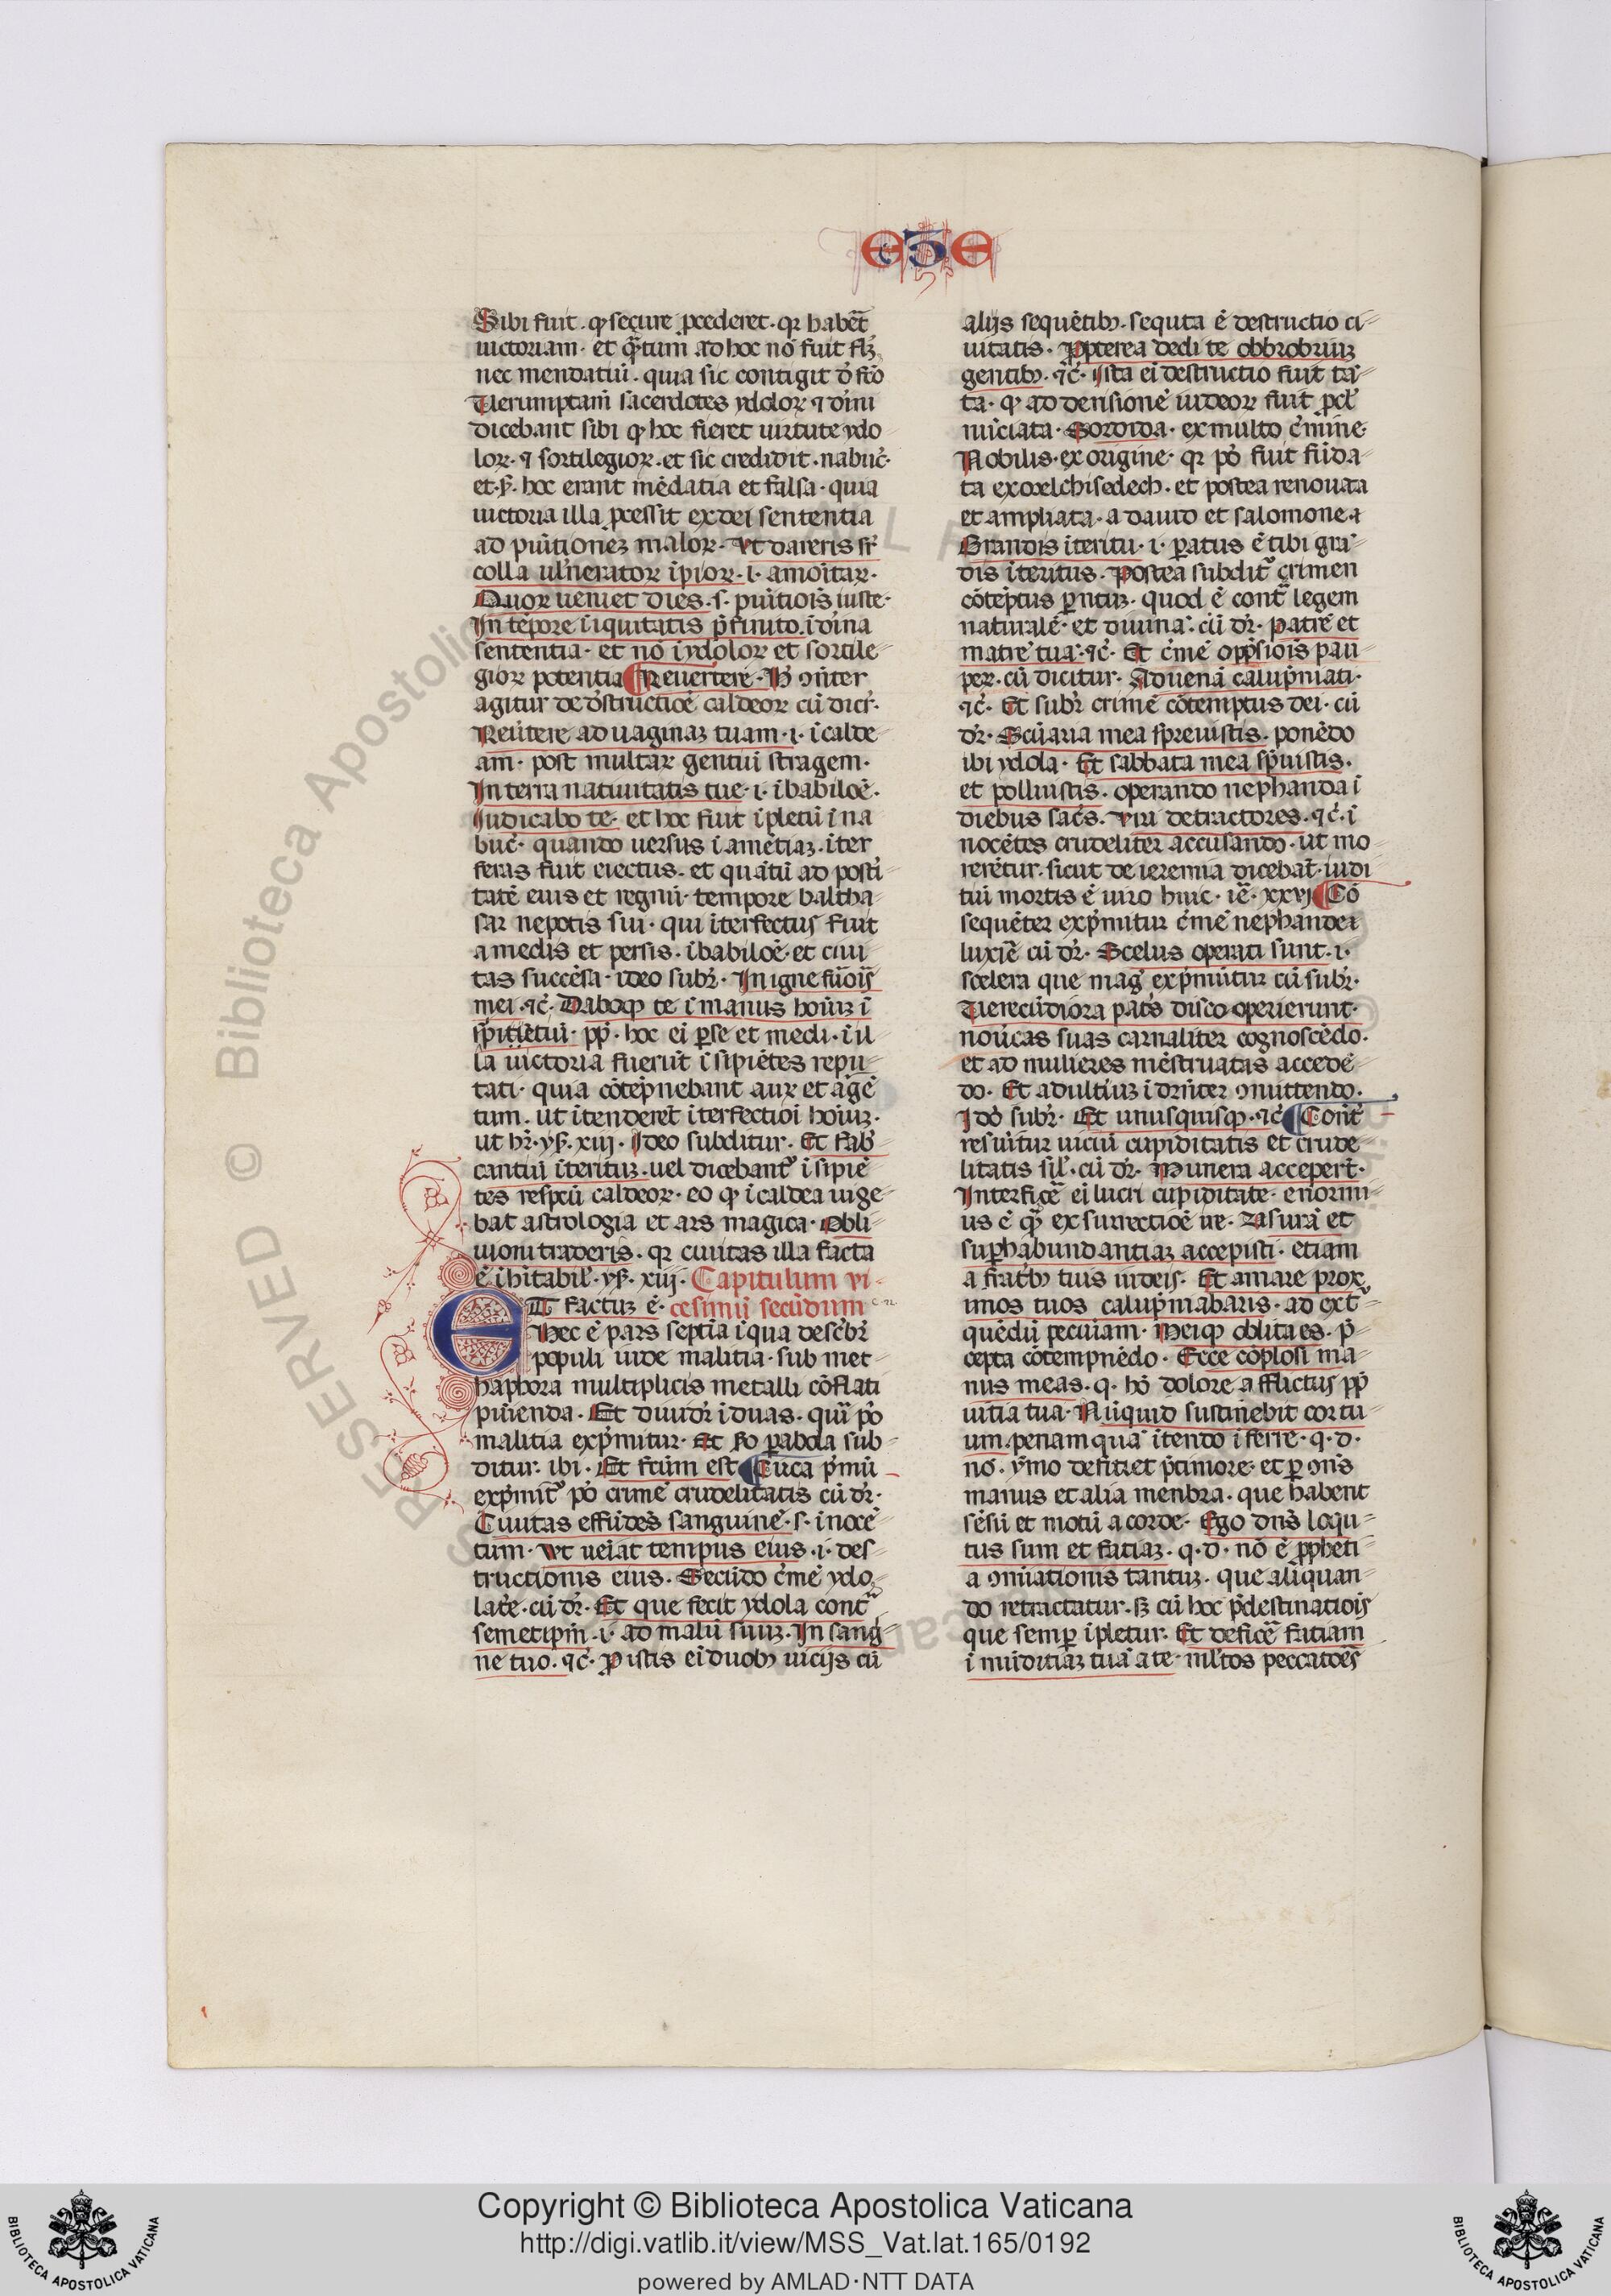 eze
Sibi fuit. ꝙ secure ꝓcederet. qꝛ habēt
uictoriam. et q̄ꝫtum ad hoc nō fuit flꝫ
nec mendatiū. quia sic contigit d̓ fc̄o
Uerumptam̄ sacerdotes ydoloꝝ ⁊ diuini
dicebant sibi ꝙ hoc fieret uirtute ydo
loꝝ. ⁊ sortilegioꝝ. et sic credidit. nabuc̓.
et. hoc erant mēdatia et falsa. quia
uictoria illa ꝓcessit ex dei sententia
ad pūitionēꝫ maloꝝ. Ut dareris sr̄
colla ul̓neratoꝝ īpioꝝ. i. amoītaꝝ.
Quoꝝ ueniet dies. s. pūitiōis iuste.
In tēpore īiquitatis p̄finito. ī dīna
sententia. et nō ī ydoloꝝ et sortile
gioꝝ potentia ¶ Reuertere. H̓ ꝯn̄ter
agitur de dēstructiōe caldeoꝝ cū dicr̄.
Reūtere ad uaginaꝫ tuam. i. ī calde
am. post multaꝝ gentiū stragem.
In terra natiuitatis tue. i. ī babilōe.
Iudicabo te. et hoc fuit īpletū ī na
buc̓. quando uersus ī amētiaꝫ. īter
feras fuit eiectus. et quātū ad posti
tatē eius et regnū. tempore baltha
sar nepotis sui. qui īterfectus fuit
a medis et persis. ī babilōe. et ciui
tas succēsa. ideo subr̄. In igne fūois
mei. ⁊c̓. Daboqꝫ te ī manus hoīuꝫ ī
sipiētiū. ꝓp̄. hoc ei perse et medi. ī il
la uictoria fuerūt īsipiētes repu
tati. quia cōtēpnebant auꝝ et argē
tum. ut ītenderēt īterfectioī hoīuꝫ.
ut hr̄. ys̓. xiij. Ideo subditur. Et fab̓
cantiū īterituꝫ. uel dicebantꝰ īsipiē
tes respcū caldeoꝝ. eo ꝙ ī caldea uige
bat astrologia et ars magica. Obli
uioni traderis. qꝛ ciuitas illa facta
ē īhītabil̓. ys̓. xiij. Capitulum vi
ET factuꝫ ē. cesimū secūdum
Hec ē pars septīa ī qua descb̓r̄
populi iude malitia. sub met
haphora multiplicis metalli cōflati
pūienda. Et diuidr̄ ī duas. quia pō
malitia exp̓mitur. Et sc̄do ꝑabola sub
ditur. ibi. Et fc̄tum est ¶ Circa p̓mū
exp̓mitꝰ pō crimē crudelitatis cū dr̄.
Ciuitas effūdēs sanguinē. s. īnocē
tum. Ut ueīat tempus eius. i. des
tructionis eius. Secūdo c̓mē ydo
lat̓e. cū dr̄. Et que fecit ydola contᵃ
semetipm̄. i. ad malū suuꝫ. In sang
ne tuo. ⁊c̓. P̱ istis eī duobꝫ uicijs cū
alijs sequētibꝫ. sequta ē destructio ci
uitatis. Propterea dedi te obbrobriuꝫ
gentibꝫ. ⁊c̓. Ista eī destructio fuit tā
ta. ꝙ ad derisionē iudeoꝝ fuit ꝑcl̓
nūciata. Sordida. ex multo c̓mine.
Nobilis. ex origine. qꝛ pō fuit fūda
ta ex melchisedech. et postea renouata
et ampliata. a dauid et salomone. ⁊
Grandis īteritu. i. ꝑatus ē tibi grā
dis īteritus. Postea subditꝰ crimen
cōtēptus ꝑntuꝫ. quod ē contᵃ legem
naturalē. et diuinā. cū dr̄. Patrē et
matrē tuā. ⁊c̓. Et c̓mē opp̄siōis pau
peꝝ. cū dicitur. Aduenā calūpniati.
⁊c̓. Et subr̄ crimē cōtemptus dei. cū
dr̄. Scūaria mea spreuistis. ponēdo
ibi ydola. Et sabbata mea sp̄uistis.
et polluistis. operando nephanda ī
diebus sac̓s. Uiri detractores. ⁊c̓. ī
nocētes crudeliter accusando. ut mo
rerētur. sicut de ieremia dicebāt. iudi
tiū mortis ē uiro huic. ie̅. xxvj ¶ Cō
sequēter exp̓mitur c̓mē nephande
luxie̅ cū dr̄. Scelus operati sunt. i.
scelera que mag̓ exp̓mūtur cū subr̄.
Uerecūdiora pat̓s discooperierunt.
nouercas suas carnaliter cognoscēdo.
et ad mulieres mēstruatas accedē
do. Et adult̓iuꝫ īdr̄nter ꝯmittendo.
Idō subr̄. Et unusquisqꝫ. ⁊c̓ ¶ Con̄t
resūitur uiciū cupiditatis et crude
litatis sil̓. cū dr̄. Munera acceper̄t.
Interfice̅ eī lucri cupiditate. enormi
us ē qᵃ ex surrectiōe ire. Usurā et
suꝑhabundantiaꝫ accepisti. etiam
a frat̓bꝫ tuis iudeis. Et auare prox
imos tuos calūpniabaris. ad extᵒ
quēdū pecuīam. Meiqꝫ oblita es. p̓
cepta cōtempnēdo. Ecce cōplosi ma
nus meas. q. hō dolore afflictus ꝓp̄
uitia tua. Nūquid sustinebit cor tu
um. penam quā ītendo īferre. q. d.
nō. ymo deficiet p̄ timore. et ꝑ ꝯn̄s
manus et alia menbra. que habent
sēsū et motū a corde. Ego dn̄s loqu
tus sum et fatiaꝫ. q. d. nō ē ꝓpheti
a ꝯmīationis tantuꝫ. que aliquan
do retractatur. sꝫ cū hoc p̄destinatiōis
que semꝑ īpletur. Et defice̅ fatiam
īmūditiaꝫ tuā a te. ml̓tos peccatōes
Copyright © Biblioteca Apostolica Vaticana
http://digi.vatlib.it/view/MSS_Vat.lat.165/0192
powered by AMLAD·NTT DATA
BIBLIOTECA APOSTOLICA VATICANA
BIBLIOTECA APOSTOLICA VATICANA